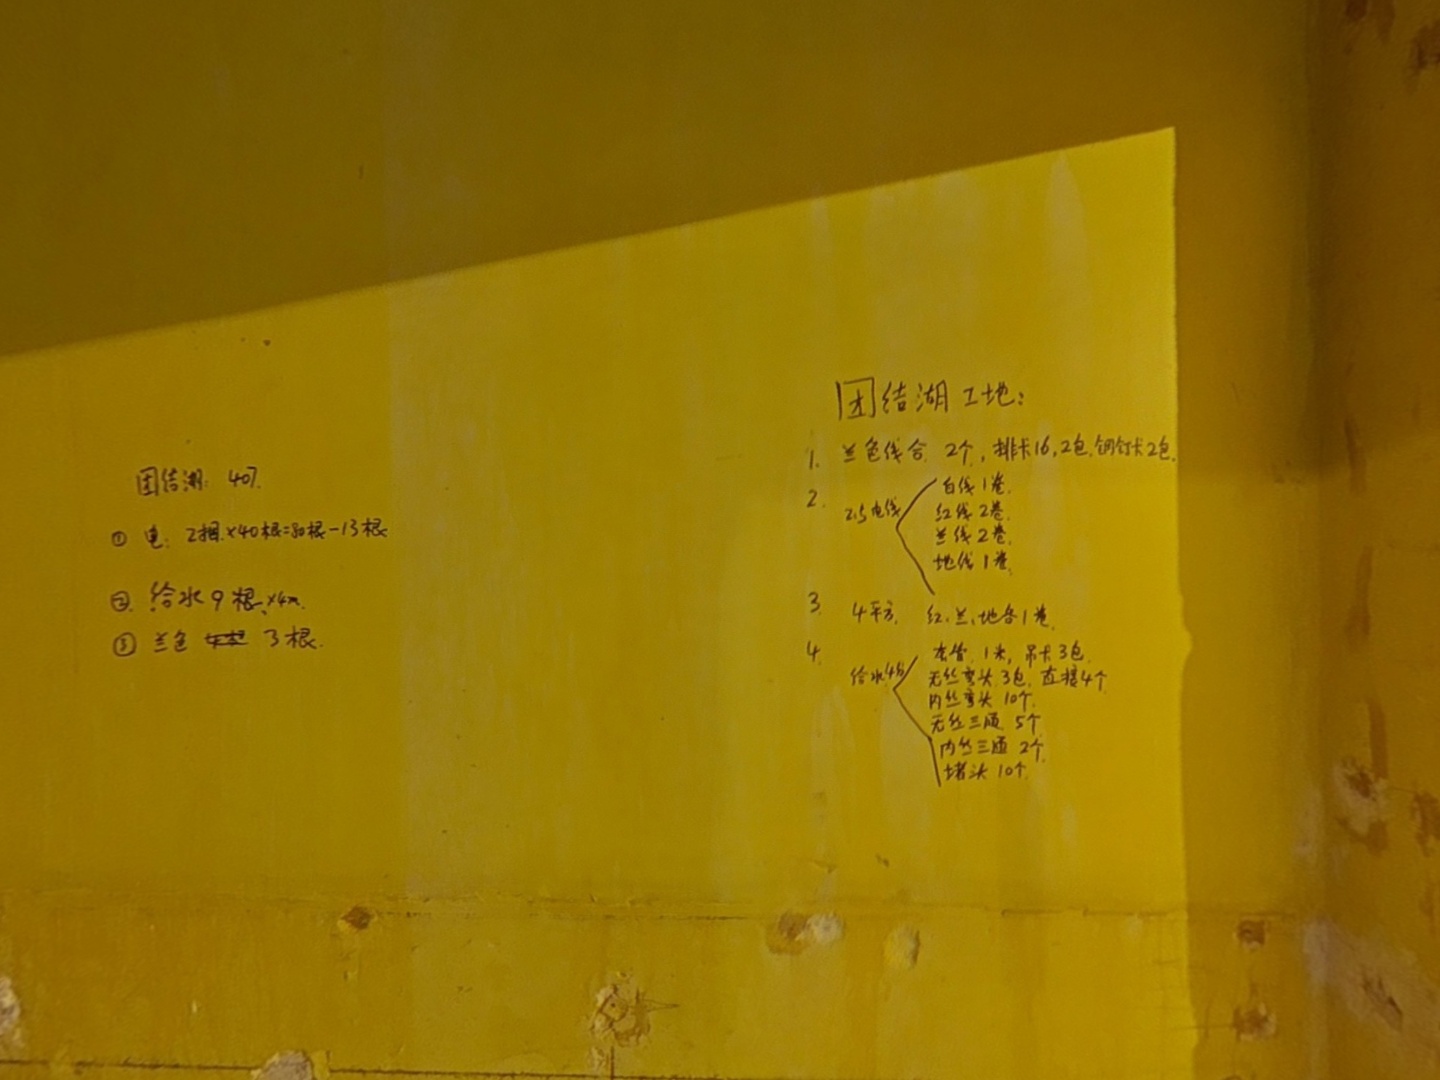 团结湖: 407.
① 电. 2捆×40根=80根-13根
② 给水9根×4m.
③ 兰色 3根.
团结湖工地:
1. 兰色线合 2个, 排卡16, 2包. 钢钉卡2包.
2. 2.5电线
白线1卷.
红线2卷.
兰线2卷.
地线1卷.
3. 4平方. 红.兰.地各1卷.
4. 给水4分
1米, 吊卡3包.
无丝弯头 3包. 直接4个
内丝弯头 10个.
无丝三通 5个
内丝三通 2个.
堵头 10个.